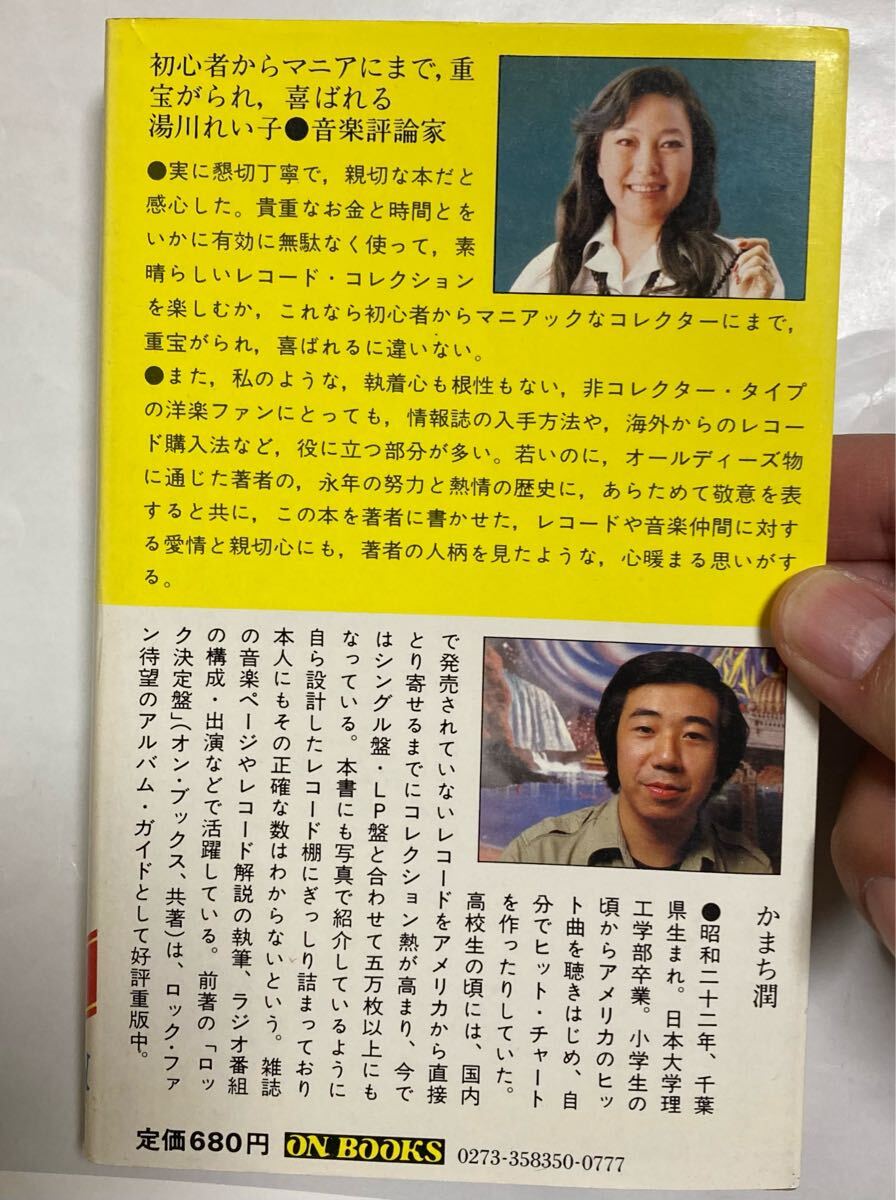 初心者からマニアにまで，重
宝がられ，喜ばれる
湯川れい子●音楽評論家
●実に懇切丁寧で，親切な本だと
感心した。貴重なお金と時間とを
いかに有効に無駄なく使って，素
晴らしいレコード・コレクション
を楽しむか，これなら初心者からマニアックなコレクターにまで，
重宝がられ，喜ばれるに違いない。
●また，私のような，執着心も根性もない，非コレクター・タイプ
の洋楽ファンにとっても，情報誌の入手方法や，海外からのレコー
ド購入法など，役に立つ部分が多い。若いのに，オールディーズ物
に通じた著者の，永年の努力と熱情の歴史に，あらためて敬意を表
すると共に，この本を著者に書かせた，レコードや音楽仲間に対す
る愛情と親切心にも，著者の人柄を見たような，心暖まる思いがす
る。
かまち潤
●昭和二十二年、千葉
県生まれ。日本大学理
工学部卒業。小学生の
頃からアメリカのヒッ
ト曲を聴きはじめ、自
分でヒット・チャート
を作ったりしていた。
高校生の頃には、国内
で発売されていないレコードをアメリカから直接
とり寄せるまでにコレクション熱が高まり、今で
はシングル盤・LP盤と合わせて五万枚以上にも
なっている。本書にも写真で紹介しているように
自ら設計したレコード棚にぎっしり詰まっており
本人にもその正確な数はわからないという。雑誌
の音楽ページやレコード解説の執筆、ラジオ番組
の構成・出演などで活躍している。前著の「ロッ
ク決定盤」（オン・ブックス、共著）は、ロック・ファ
ン待望のアルバム・ガイドとして好評重版中。
定価680円 ON BOOKS 0273-358350-0777